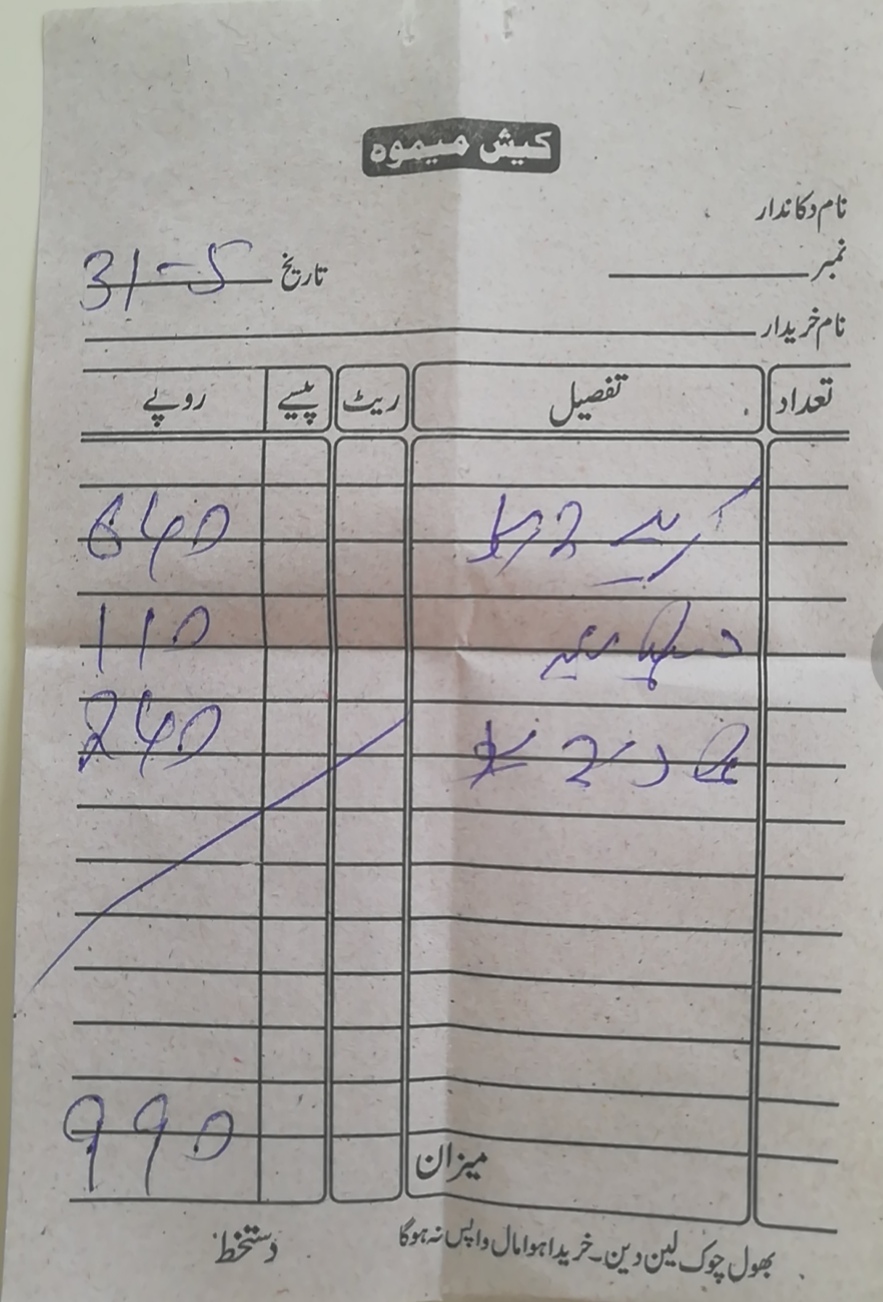 کیش میمو
نام دکاندار
نمبر تاریخ 31-5
نام خریدار
تعداد تفصیل ریٹ پیسے روپے
کریلے 2 کلو 640
110
2 کلو 240
میزان 990
بھول چوک لین دین۔ خریدا ہوا مال واپس نہ ہوگا دستخط